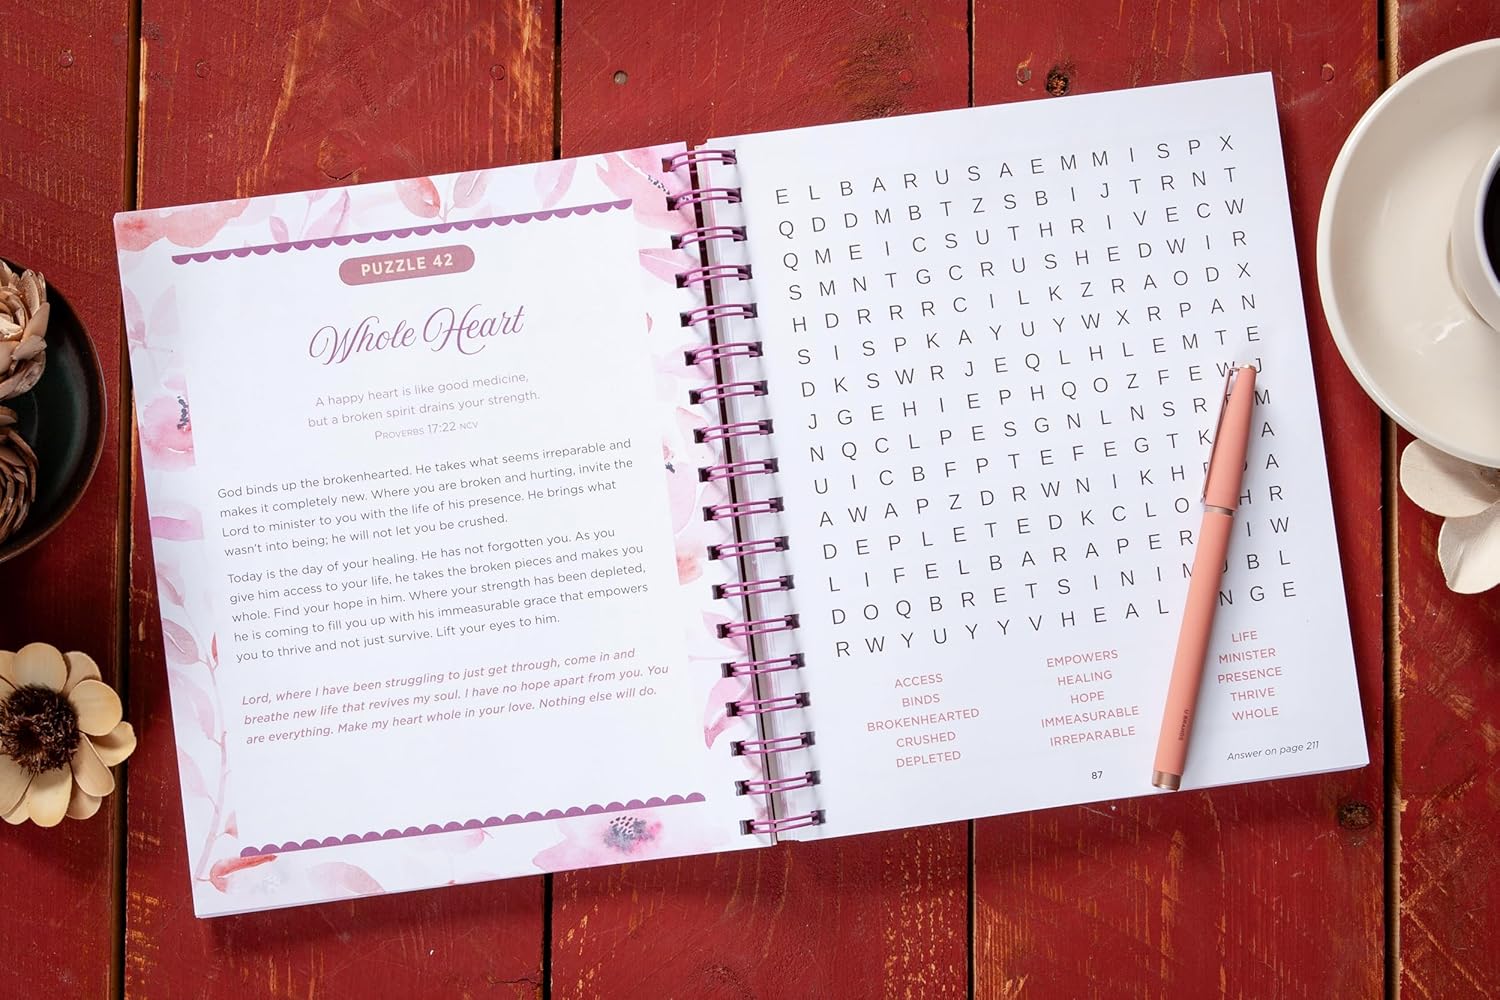 PUZZLE 42
Whole Heart
A happy heart is like good medicine,
but a broken spirit drains your strength.
PROVERBS 17:22 NCV
God binds up the brokenhearted. He takes what seems irreparable and
makes it completely new. Where you are broken and hurting, invite the
Lord to minister to you with the life of his presence. He brings what
wasn't into being; he will not let you be crushed.
Today is the day of your healing. He has not forgotten you. As you
give him access to your life, he takes the broken pieces and makes you
whole. Find your hope in him. Where your strength has been depleted,
he is coming to fill you up with his immeasurable grace that empowers
you to thrive and not just survive. Lift your eyes to him.
Lord, where I have been struggling to just get through, come in and
breathe new life that revives my soul. I have no hope apart from you. You
are everything. Make my heart whole in your love. Nothing else will do.
E L B A R U S A E M M I S P X
Q D D M B T Z S B I J T R N T
Q M E I C S U T H R I V E C W
S M N T G C R U S H E D W I R
H D R R R C I L K Z R A O D X
S I S P K A Y U Y W X R P A N
D K S W R J E Q L H L E M T E
J G E H I E P H Q O Z F E W J
N Q C L P E S G N L N S R M
U I C B F P T E F E G T K A
A W A P Z D R W N I K H A
D E P L E T E D K C L O H R
L I F E L B A R A P E R I W
D O Q B R E T S I N I M B L
R W Y U Y Y V H E A L N G E
ACCESS
BINDS
BROKENHEARTED
CRUSHED
DEPLETED
EMPOWERS
HEALING
HOPE
IMMEASURABLE
IRREPARABLE
LIFE
MINISTER
PRESENCE
THRIVE
WHOLE
Answer on page 211
87